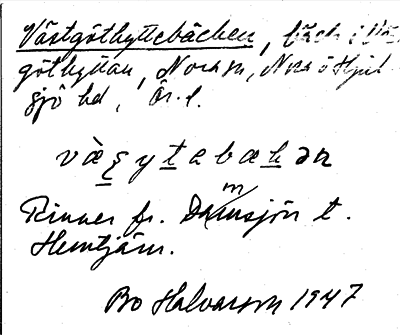 Västgöthyttebäcken, bäck i Väst-
göthyttan, Nora sn, Nora o Hjul-
sjö hd, Ör. l.
Rinner fr. Dammsjön t.
Hemtjärn.
Bo Halvarson 1947